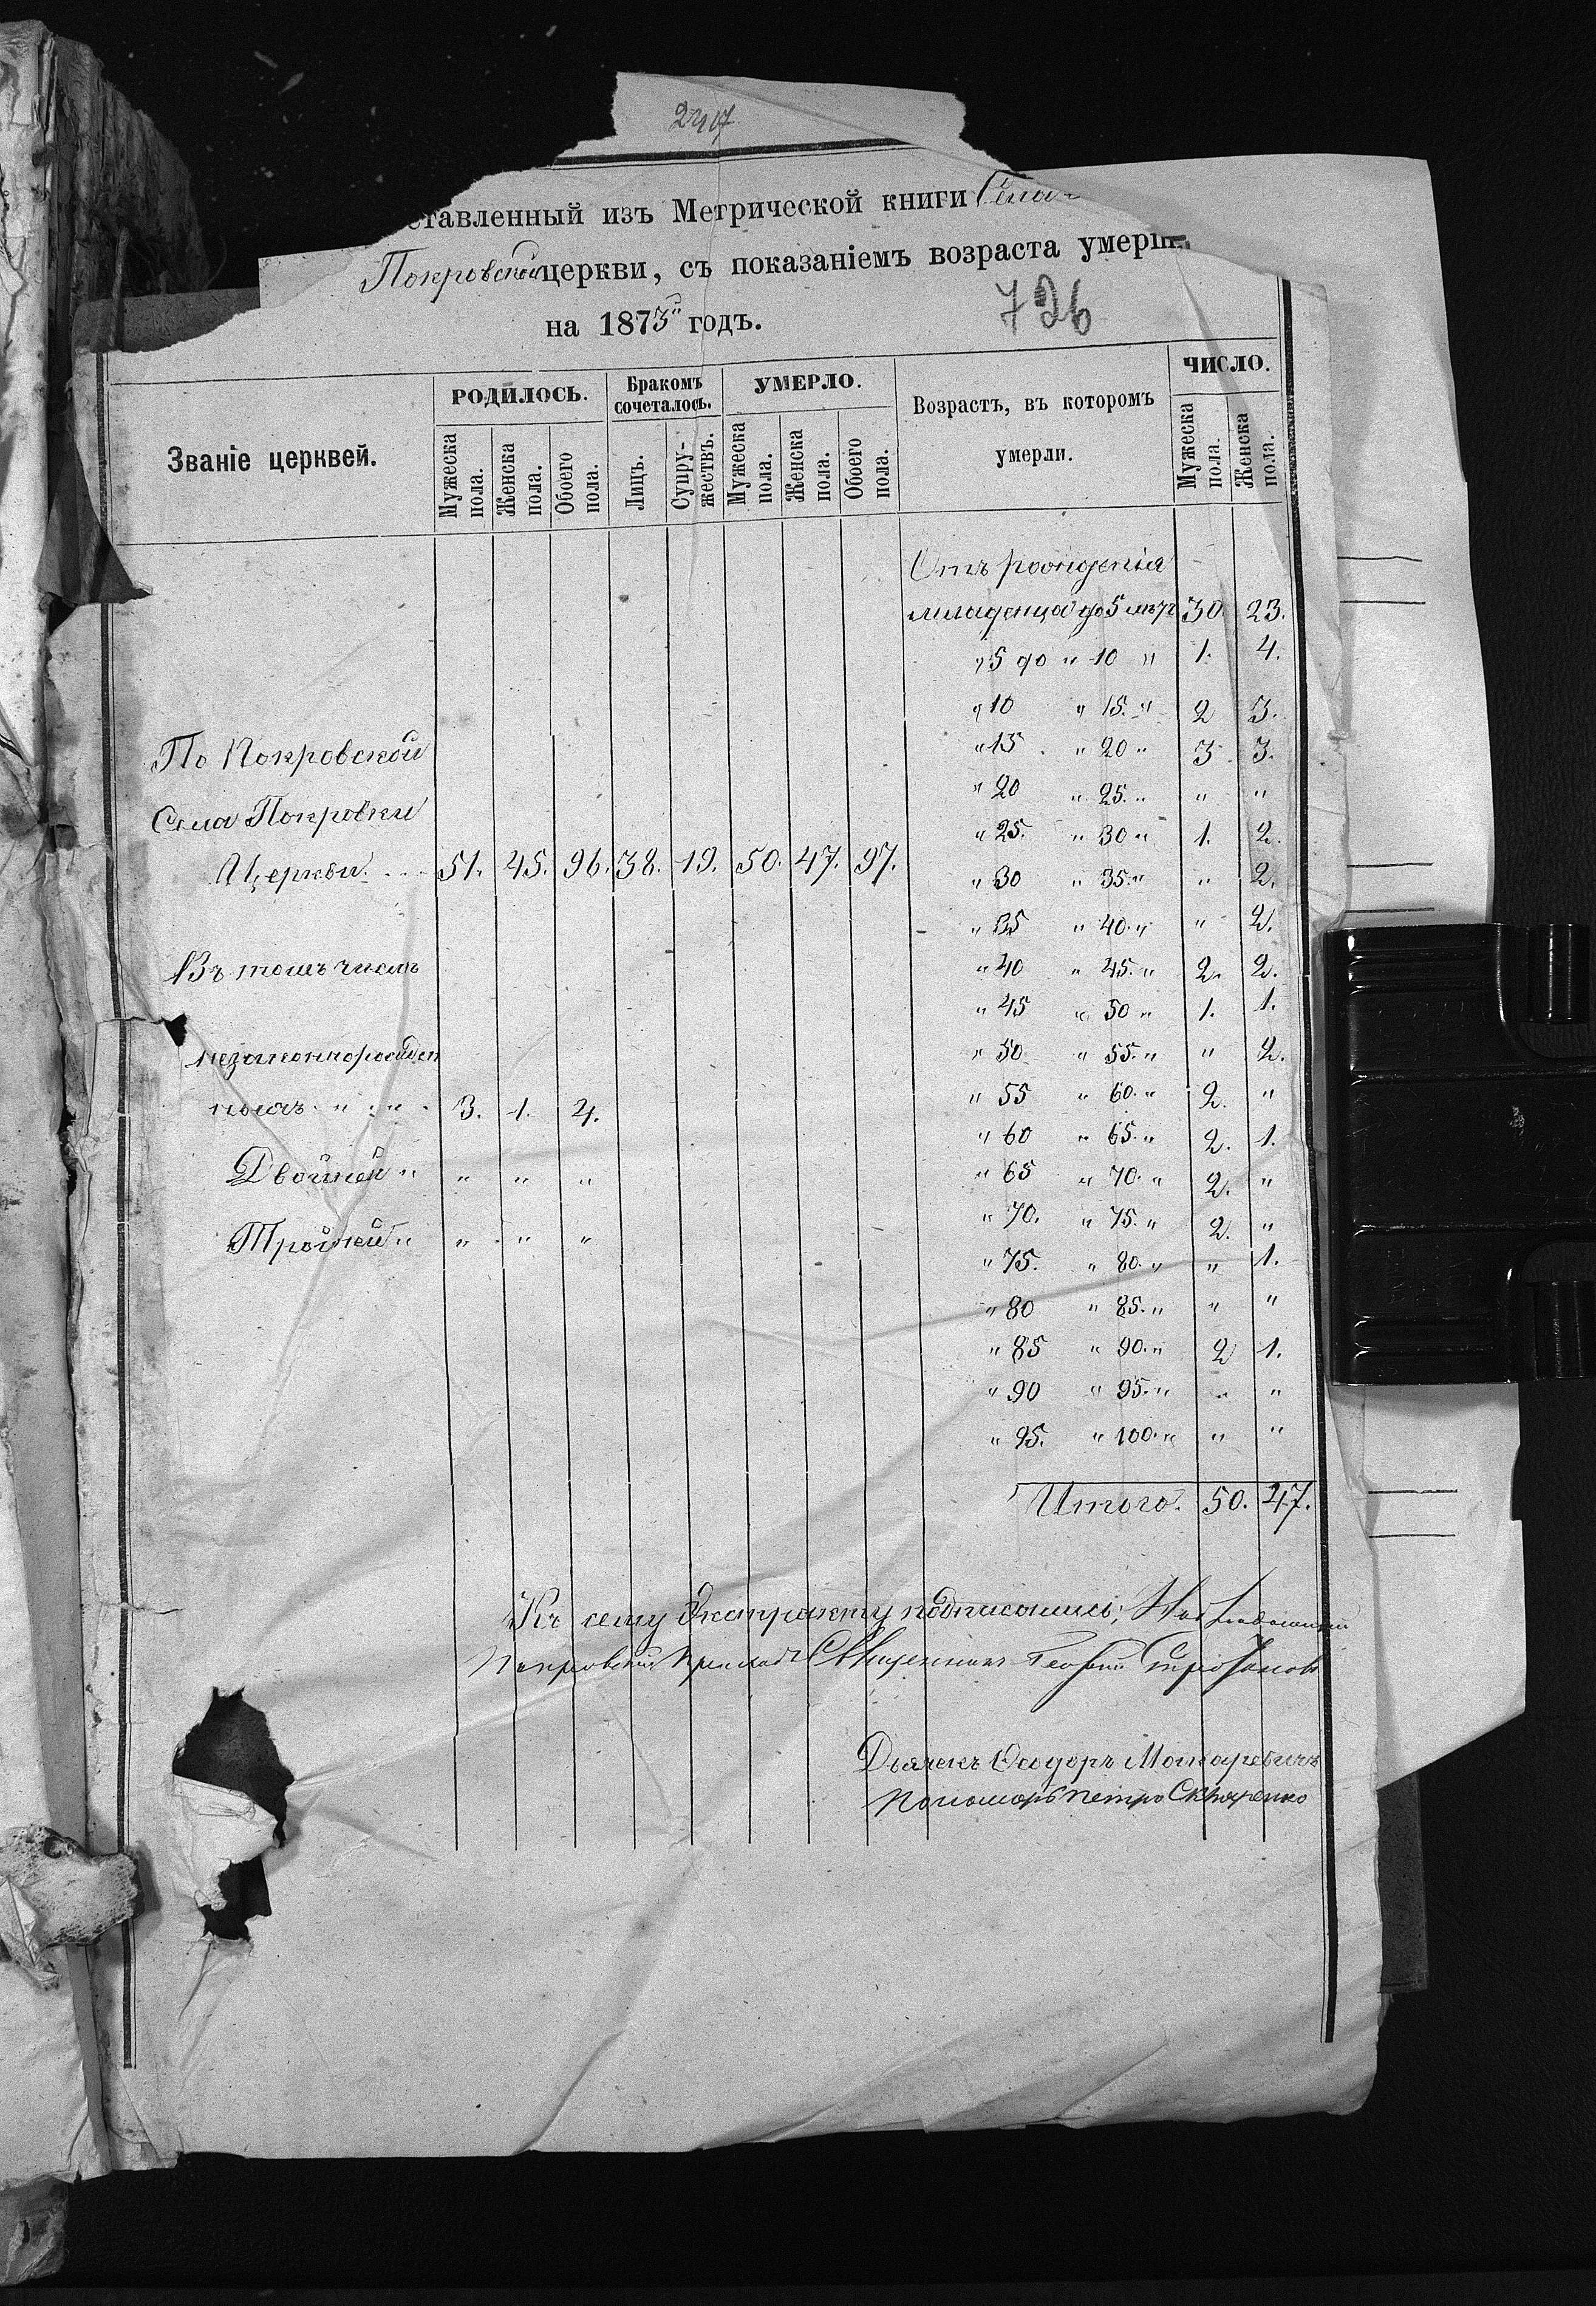 2407
ставленный изъ Метрической книги Села
Покровской церкви, съ показаніемъ возраста умерш
на 1873й годъ.
726
Званіе церквей.
РОДИЛОСЬ.
Бракомъ сочеталось.
УМЕРЛО.
Возрастъ, въ которомъ умерли.
ЧИСЛО.
Мужеска пола.
Женска пола.
Обоего пола.
Лицъ.
Супружествъ.
Мужеска пола.
Женска пола.
Обоего пола.
Мужеска пола.
Женска пола.
Отъ рожденія
младенца до 5 лѣтъ 30. 23.
" 5 до " 10 " 1. 4.
" 10 " 15. " 2 3.
" 15 " 20 " 3 3.
" 20 " 25. " " "
" 25. " 30 " 1. 2.
" 30 " 35. " " 2.
" 35 " 40. " " 2.
" 40 " 45. " 2. 2.
" 45 " 50 " 1. 1.
" 50 " 55. " " 2.
" 55 " 60. " 2. "
" 60 " 65. " 2. 1.
" 65 " 70. " 2. "
" 70. " 75. " 2. "
" 75. " 80. " " 1.
" 80 " 85. " " "
" 85 " 90. " 2 1.
" 90 " 95. " " "
" 95. " 100. " " "
Итого. 50. 47.
По Покровской
Села Покровки
Церкви. 51. 45. 96. 38. 19. 50. 47. 97.
Въ томъ числѣ
незаконнорожден
ныхъ " " 3. 1. 4.
Двойней " " " "
Тройней " " " "
Къ сему Экстракту подписались:
Покровский Священникъ Георгий
Дьячекъ Ѳеодоръ Макаревичъ
Пономарь Петро Скляренко